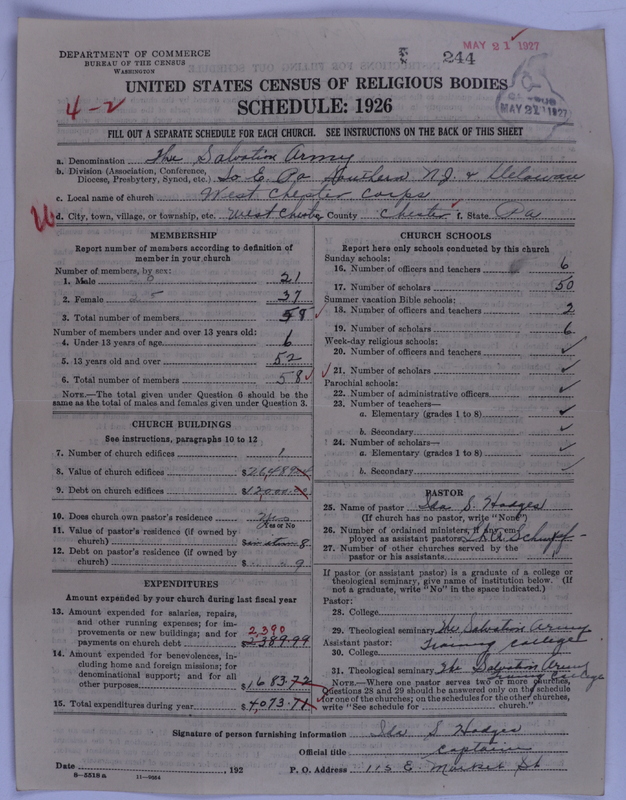 DEPARTMENT OF COMMERCE
BUREAU OF THE CENSUS
WASHINGTON
244
MAY 21 1927
MAY 21 1927
4-2
UNITED STATES CENSUS OF RELIGIOUS BODIES
SCHEDULE: 1926
FILL OUT A SEPARATE SCHEDULE FOR EACH CHURCH. SEE INSTRUCTIONS ON THE BACK OF THIS SHEET
a. Denomination The Salvation Army
b. Division (Association, Conference, Diocese, Presbytery, Synod, etc.) So. E. Pa Southern N.J. & Delaware
c. Local name of church West Chester Corps
d. City, town, village, or township, etc. West Chester County Chester f. State Pa
MEMBERSHIP
Report number of members according to definition of member in your church
Number of members, by sex:
1. Male 21
2. Female 37
3. Total number of members 58
Number of members under and over 13 years old:
4. Under 13 years of age 6
5. 13 years old and over 52
6. Total number of members 58
NOTE.—The total given under Question 6 should be the same as the total of males and females given under Question 3.
CHURCH BUILDINGS
See instructions, paragraphs 10 to 12
7. Number of church edifices 1
8. Value of church edifices $26,489
9. Debt on church edifices $12000
10. Does church own pastor's residence Yes
(Yes or No)
11. Value of pastor's residence (if owned by church) $ 8
12. Debt on pastor's residence (if owned by church) $ 9
EXPENDITURES
Amount expended by your church during last fiscal year
13. Amount expended for salaries, repairs, and other running expenses; for improvements or new buildings; and for payments on church debt 2,390 $2389.99
14. Amount expended for benevolences, including home and foreign missions; for denominational support; and for all other purposes $1683.72
15. Total expenditures during year $4,073.71
CHURCH SCHOOLS
Report here only schools conducted by this church
Sunday schools:
16. Number of officers and teachers 6
17. Number of scholars 50
Summer vacation Bible schools:
18. Number of officers and teachers 2
19. Number of scholars 6
Week-day religious schools:
20. Number of officers and teachers ✓
21. Number of scholars ✓
Parochial schools:
22. Number of administrative officers ✓
23. Number of teachers—
a. Elementary (grades 1 to 8) ✓
b. Secondary ✓
24. Number of scholars—
a. Elementary (grades 1 to 8) ✓
b. Secondary ✓
PASTOR
25. Name of pastor Ida S. Hodges
(If church has no pastor, write "None")
26. Number of ordained ministers, if any, employed as assistant pastors
27. Number of other churches served by the pastor or his assistants
If pastor (or assistant pastor) is a graduate of a college or theological seminary, give name of institution below. (If not a graduate, write "No" in the space indicated.)
Pastor:
28. College
29. Theological seminary The Salvation Army Training College
Assistant pastor:
30. College
31. Theological seminary The Salvation Army Training College
NOTE.—Where one pastor serves two or more churches, Questions 28 and 29 should be answered only on the schedule for one of the churches; on the schedules for the other churches, write "See schedule for church."
Signature of person furnishing information Ida S Hodges
Official title Captain
Date , 192 P. O. Address 115 E. Market St
8—5518a 11—9064